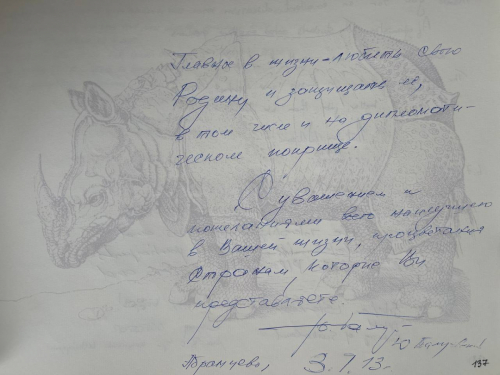 Главное в жизни – любить свою
Родину и защищать её,
в том числе и на дипломати-
ческом поприще.
С уважением и
пожеланиями всего наилучшего
в Вашей жизни, процветания
странам, которые Вы
представляете.
Абрамцево, 3.7.13г.
137